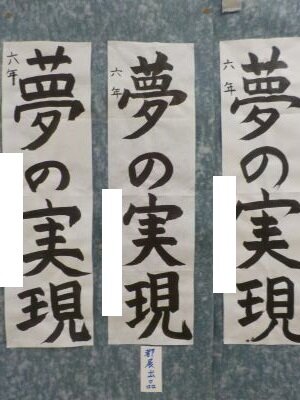 六年
夢の実現
六年
夢の実現
六年
夢の実現
都展出品